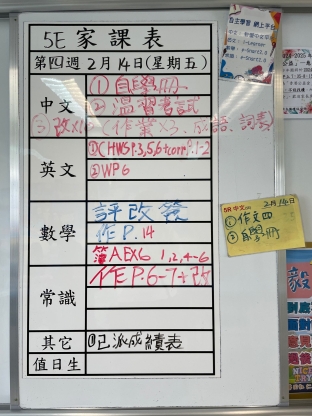 5E 家課表
第四週 2月14日(星期五)
中文
① 自學冊
② 溫習考試
③ 改x10 (作業x3, 成語, 詞表)
英文
① CHWS P.3,5,6+corr P.1-2
② WP6
數學
評改簽
作 P.14
簿 AEX6 1,2,4-6
常識
作 P.6-7+改
其它
①已派成績表
值日生
自主學習 網上平台
5R 中文
2月14日
① 作文四
② 自學冊